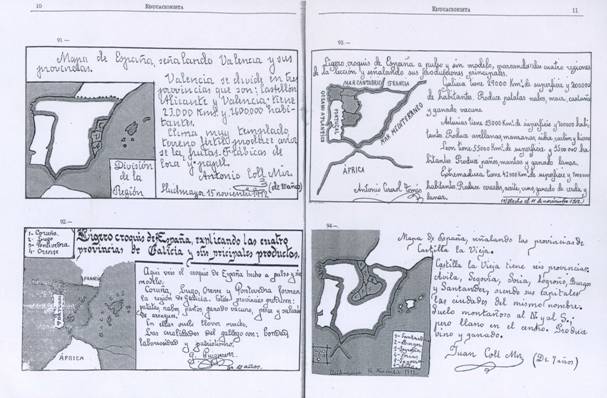 10
EDUCACIONISTA
91.—
Mapa de España, señalando Valencia y sus
provincias.
Valencia se divide en tres
provincias que son: Castellón
Alicante y Valencia: tiene
23.000 Km. y 1600000 habi-
tantes.
Clima muy templado
terreno fértil produce arroz
seda, frutas. Fábricas de
loza y papel.
Antonio Coll Mor.
(de 11 años)
Lluchmayor 15 noviembre 1912
División
de la
Región
92.—
1- Coruña.
2- Lugo.
3- Pontevedra
4- Orense
Ligero croquis de España, explicando las cuatro
provincias de Galicia y sus principales productos.
FRANCIA
PORTUGAL
ÁFRICA
Aquí veis el croquis de España hecho a pulso y sin
modelo.
Coruña, Lugo, Orense y Pontevedra forman
la región de Galicia. Estas provincias producen:
patatas, nabos, pastos, ganado vacuno, pesca y salazón
de sardinas.
En ellas suele llover mucho.
Las cualidades del gallego son: bondad,
laboriosidad y patriotismo.
años.
EDUCACIONISTA
11
93.—
Ligero croquis de España a pulso y sin modelo, marcando las cuatro regiones
de la sección y señalando sus producciones principales.
MAR CANTÁBRICO
FRANCIA
OCÉANO ATLÁNTICO
PORTUGAL
MAR MEDITERRÁNEO
ÁFRICA
Galicia tiene 29000 Km. de superficie y 2000000
de habitantes. Produce patatas, nabos, maíz, castañas
y ganado vacuno.
Asturias tiene
habitantes. Produce avellanas, manzanas, sidra,
León tiene
habitantes. Produce paños, mantas y ganado lanar.
Extremadura tiene 42000 Km. de superficie y
habitantes. Produce cereales, aceite, vino, ganado de cerda y
lanar.
Antonio Tomás
94.—
Mapa de España, señalando las provincias de
Castilla la Vieja.
Castilla la Vieja tiene seis provincias:
Avila, Segovia, Soria, Logroño, Burgos
y Santander, siendo sus capitales
las ciudades del mismo nombre.
Suelo montañoso al N. y al S.,
pero llano en el centro. Produce
vino y ganado.
Juan Coll Mor
(De 7 años)